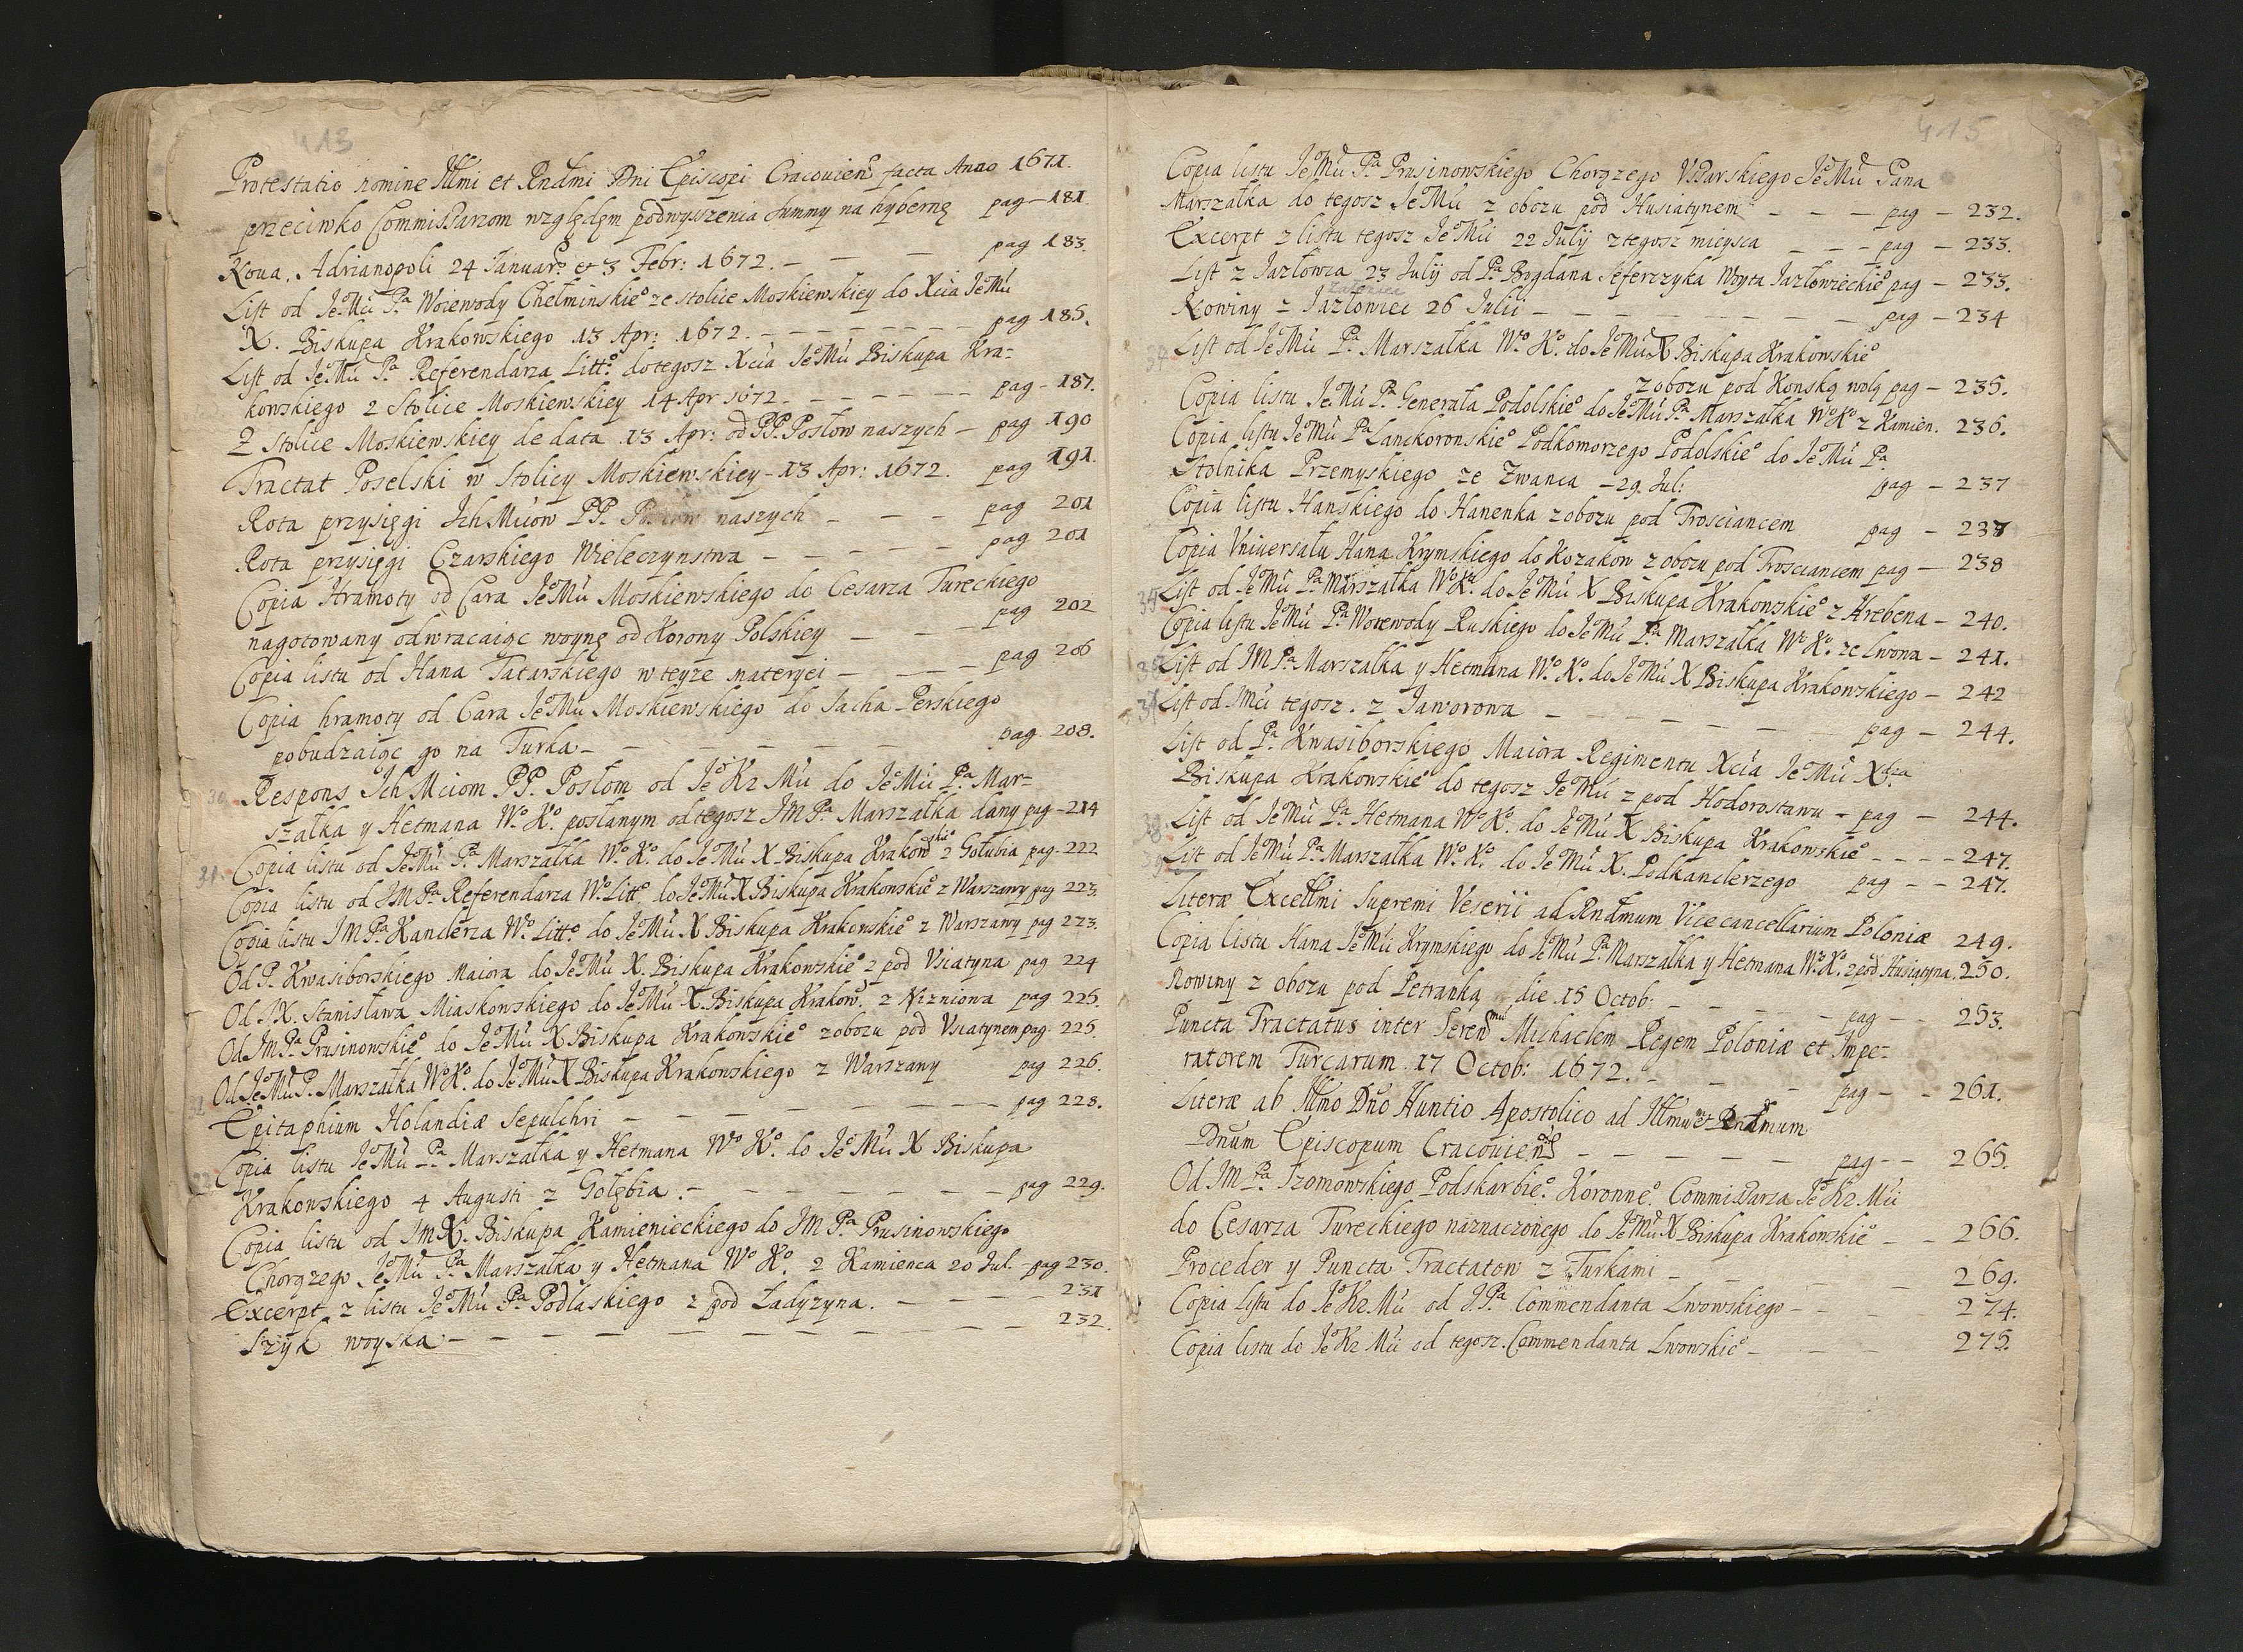 413
Protestatio nomine Illmi et Rndmi Dni Episcopi Cracovien facta Anno 1671.
przeciwko Commissarzom względem podwyszenia summy na hybernę pag - 181.
Nova. Adrianopoli 24 Januar. et 3 Febr: 1672. - - - pag 183.
List od JeoMci Pa Woiewody Chełminskieo ze stolice Moskiewskiey do Xcia JeoMci
X. Biskupa Krakowskiego 13 Apr: 1672. - - - - - - - - pag 185.
List od JeoMci Pa Referendarza Litto. do tegosz Xcia JeoMci Biskupa Kra-
kowskiego z Stolice Moskiewskiey 14 Apr 1672. - - - - - - pag - 187.
Z stolice Moskiewskiey de data 13 Apr: od PP. Posłow naszych - pag 190
Tractat Poselski w Stolicy Moskiewskiey - 13 Apr: 1672. pag 191.
Rota przysięgi Ich Mciow PP. Posłow naszych - - - pag 201
Rota przysięgi Czarskiego Wieleczynstwa - - - - - pag 201
Copia Hramoty od Cara JeoMci Moskiewskiego do Cesarza Tureckiego
nagotowany odwracaiąc woynę od Korony Polskiey - - - pag 202
Copia listu od Hana Tatarskiego w teyze materyei - - - pag 206
Copia hramoty od Cara JeoMci Moskiewskiego do Sacha Perskiego
pobudzaiąc go na Turka - - - - - - pag 208.
30. Respons Ich Mciom PP. Posłom od Jeo Kr Mci do JeoMci Pa Mar-
szałka y Hetmana Wo. Ko. posłanym od tegosz JM Pa Marszałka dany pag - 214
31. Copia listu od JeoMci Pa Marszałka Wo. Ko. do JeoMci X Biskupa Krakowskieo z Gołubia pag. 222
Copia listu od JM Pa Referendarza Wo. Litto do JeoMci X Biskupa Krakowskieo z Warszawy pag 223.
Copia listu JM Pa Kanclerza Wo. Litto. do JeoMci X Biskupa Krakowskieo z Warszawy pag 223.
Od P. Kwasiborskiego Maiora do JeoMci X. Biskupa Krakowskieo z pod Vsiatyna pag 224
Od JX. Stanisława Miaskowskiego do JeoMci X. Biskupa Krakowo. z Nizniowa pag 225.
Od JM Pa Prusinowskieo do JeoMci X Biskupa Krakowskieo z obozu pod Vsiatynem pag. 225.
Od JeoMci P. Marszałka Wo Ko. do JeoMci X Biskupa Krakowskiego z Warszawy pag 226.
Epitaphium Holandiæ Sepulchri - - - - - - - - pag 228.
Copia listu JeoMci Pa Marszałka y Hetmana Wo Ko. do JeoMci X Biskupa
Krakowskiego 4 Augusti z Gołębia. - - - - - - - pag 229.
Copia listu od JM X. Biskupa Kamienieckiego do JM Pa Prusinowskiego
Chorązego JeoMci Pa Marszałka y Hetmana Wo Ko. z Kamienca 20 Jul. - pag 230.
Excerpt z listu JeoMci Pa Podlaskiego z pod Ładyzyna. - - - - 231
Szyk woyska - - - - - - - - 232.
415
Copia listu JeoMci Pa Prusinowskiego Chorązego Vssarskiego JeoMci Pana
Marszałka do tegosz JeoMci z obozu pod Husiatynem - - - pag - 232.
Excerpt z listu tegosz JeoMci 22 July z tegosz mieysca - - - pag - 233.
List z Jazłowca 23 Julij od Pa Bogdana Seferczyka Woyta Jazłowieckieo pag - 233.
Nowiny z Jazłowiec 26 Julii - - - - - - - - pag - 234
List od JeoMci Pa. Marszałka Wo. Ko. do JeoMci X Biskupa Krakowskieo
z obozu pod Konską wolą pag - 235.
Copia listu JeoMci Pa Generała Podolskieo do JeoMci Pa Marszałka Wo Ko z Kamien. 236.
Copia listu JeoMci Pa Lanckoronskieo Podkomorzego Podolskieo do JeoMci Pa
Stolnika Przemyskiego ze Zwanca - 29. Jul: pag - 237
Copia listu Hanskiego do Hanenka z obozu pod Trosciancem pag - 237
Copia Vniversału Hana Krymskiego do Kozakow z obozu pod Trosciancem pag - 238
List od JeoMci Pa Marszałka Wo Ko. do JeoMci X Biskupa Krakowskieo z Hrebena - 240.
Copia listu JeoMci Pa Woiewody Ruskiego do JeoMci Pa Marszałka Wo Ko. ze Lwowa - 241.
List od JM Pa Marszałka y Hetmana Wo. Ko. do JeoMci X Biskupa Krakowskiego - 242
List od JMci tegosz. z Jaworowa - - - - - pag - 244.
List od Pa. Kwasiborskiego Maiora Regimentu Xcia JeoMci Xdza
Biskupa Krakowskieo do tegosz JeoMci z pod Hodorostawu - pag - 244.
List od JeoMci Pa Hetmana Wo Ko. do JeoMci X Biskupa Krakowskieo - - - - 247.
List od JeoMci Pa Marszałka Wo. Ko. do JeoMci X. Podkanclerzego pag - - 247.
Literæ Excellmi Supremi Veserii ad Rndmum Vicecancellarium Poloniæ 249.
Copia listu Hana JeoMci Krymskiego do JeoMci Pa Marszałka y Hetmana Wo. Ko. z pod Husiatyna. 250.
Nowiny z obozu pod Petranką die 15 Octob: - - - - pag - - 253.
Puncta Tractatus inter Serenmum Michaelem Regem Poloniæ et Impe-
ratorem Turcarum. 17 Octob: 1672. - - - pag - - 261.
Literæ ab Illmo Dno Nuntio Apostolico ad Illmum et Rndmum
Dnum Episcopum Cracovien - - - - - pag - - 265.
Od JM Pa. Szomowskiego Podskarbieo. Koronneo. Commissarza Jeo Kr. Mci
do Cesarza Tureckiego naznaczonego do JeoMci X Biskupa Krakowskieo - - 266.
Proceder y Puncta Tractatow z Turkami - - - - 269.
Copia listu do Jeo Kr. Mci od J. Pa Commendanta Lwowskiego - - - 274.
Copia listu do Jeo Kr Mci od tegosz. Commendanta Lwowskieo - - - 275.